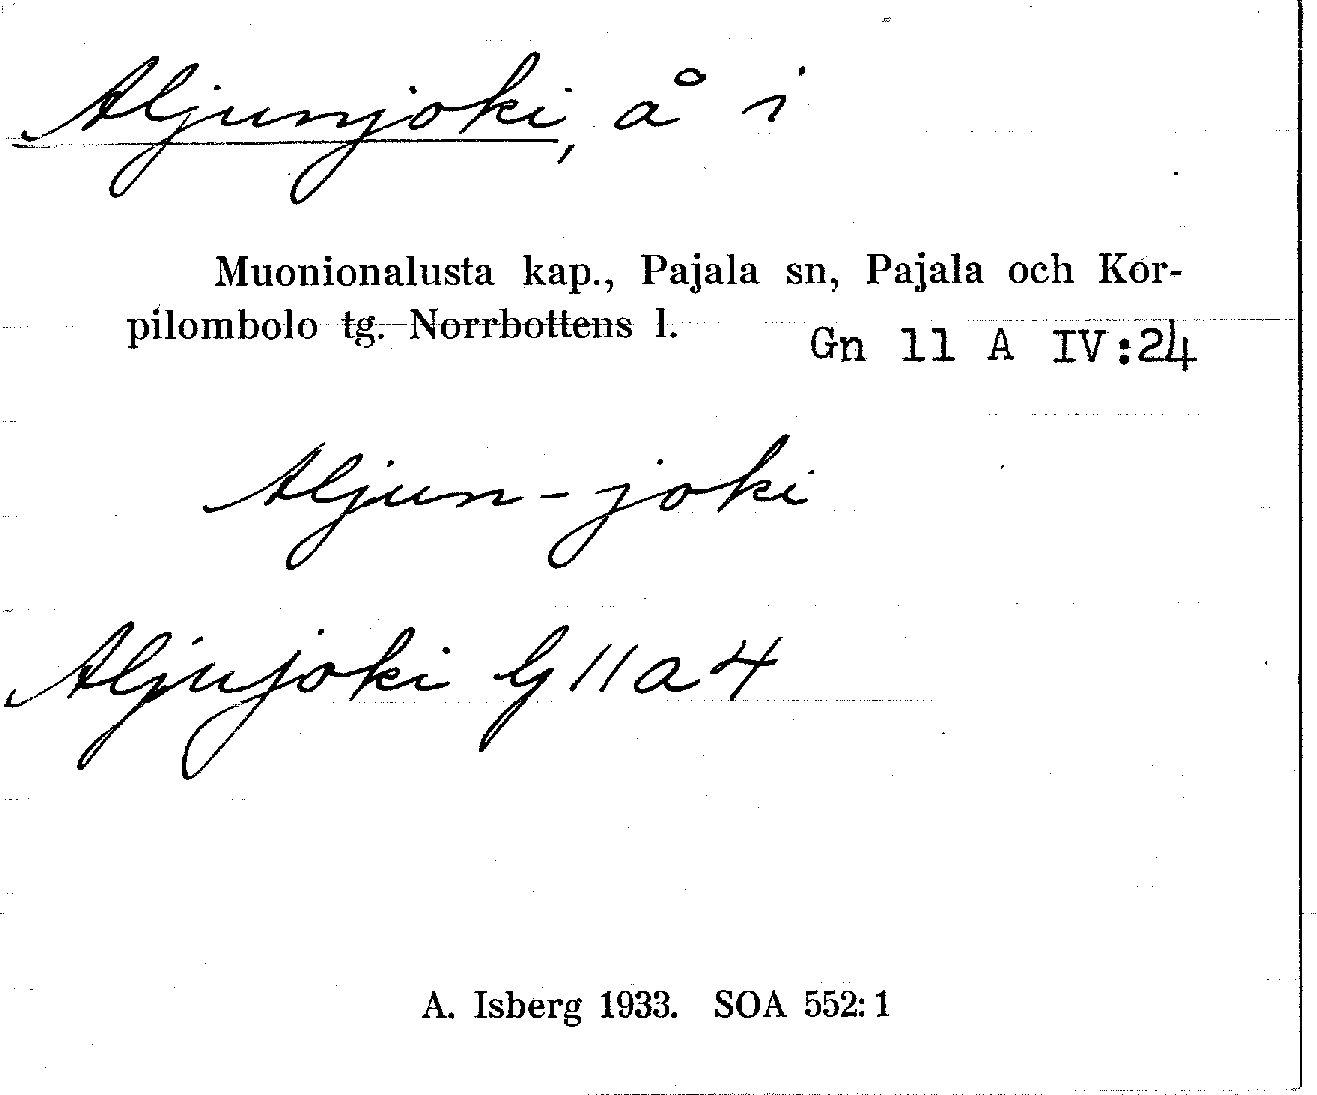 Aljunjoki, å i
Muonionalusta kap., Pajala sn, Pajala och Kor-
pilombolo tg. Norrbottens l.
Gn 11 A IV:24
Aljun-joki
Aljujoki G 11 a 4
A. Isberg 1933. SOA 552:1